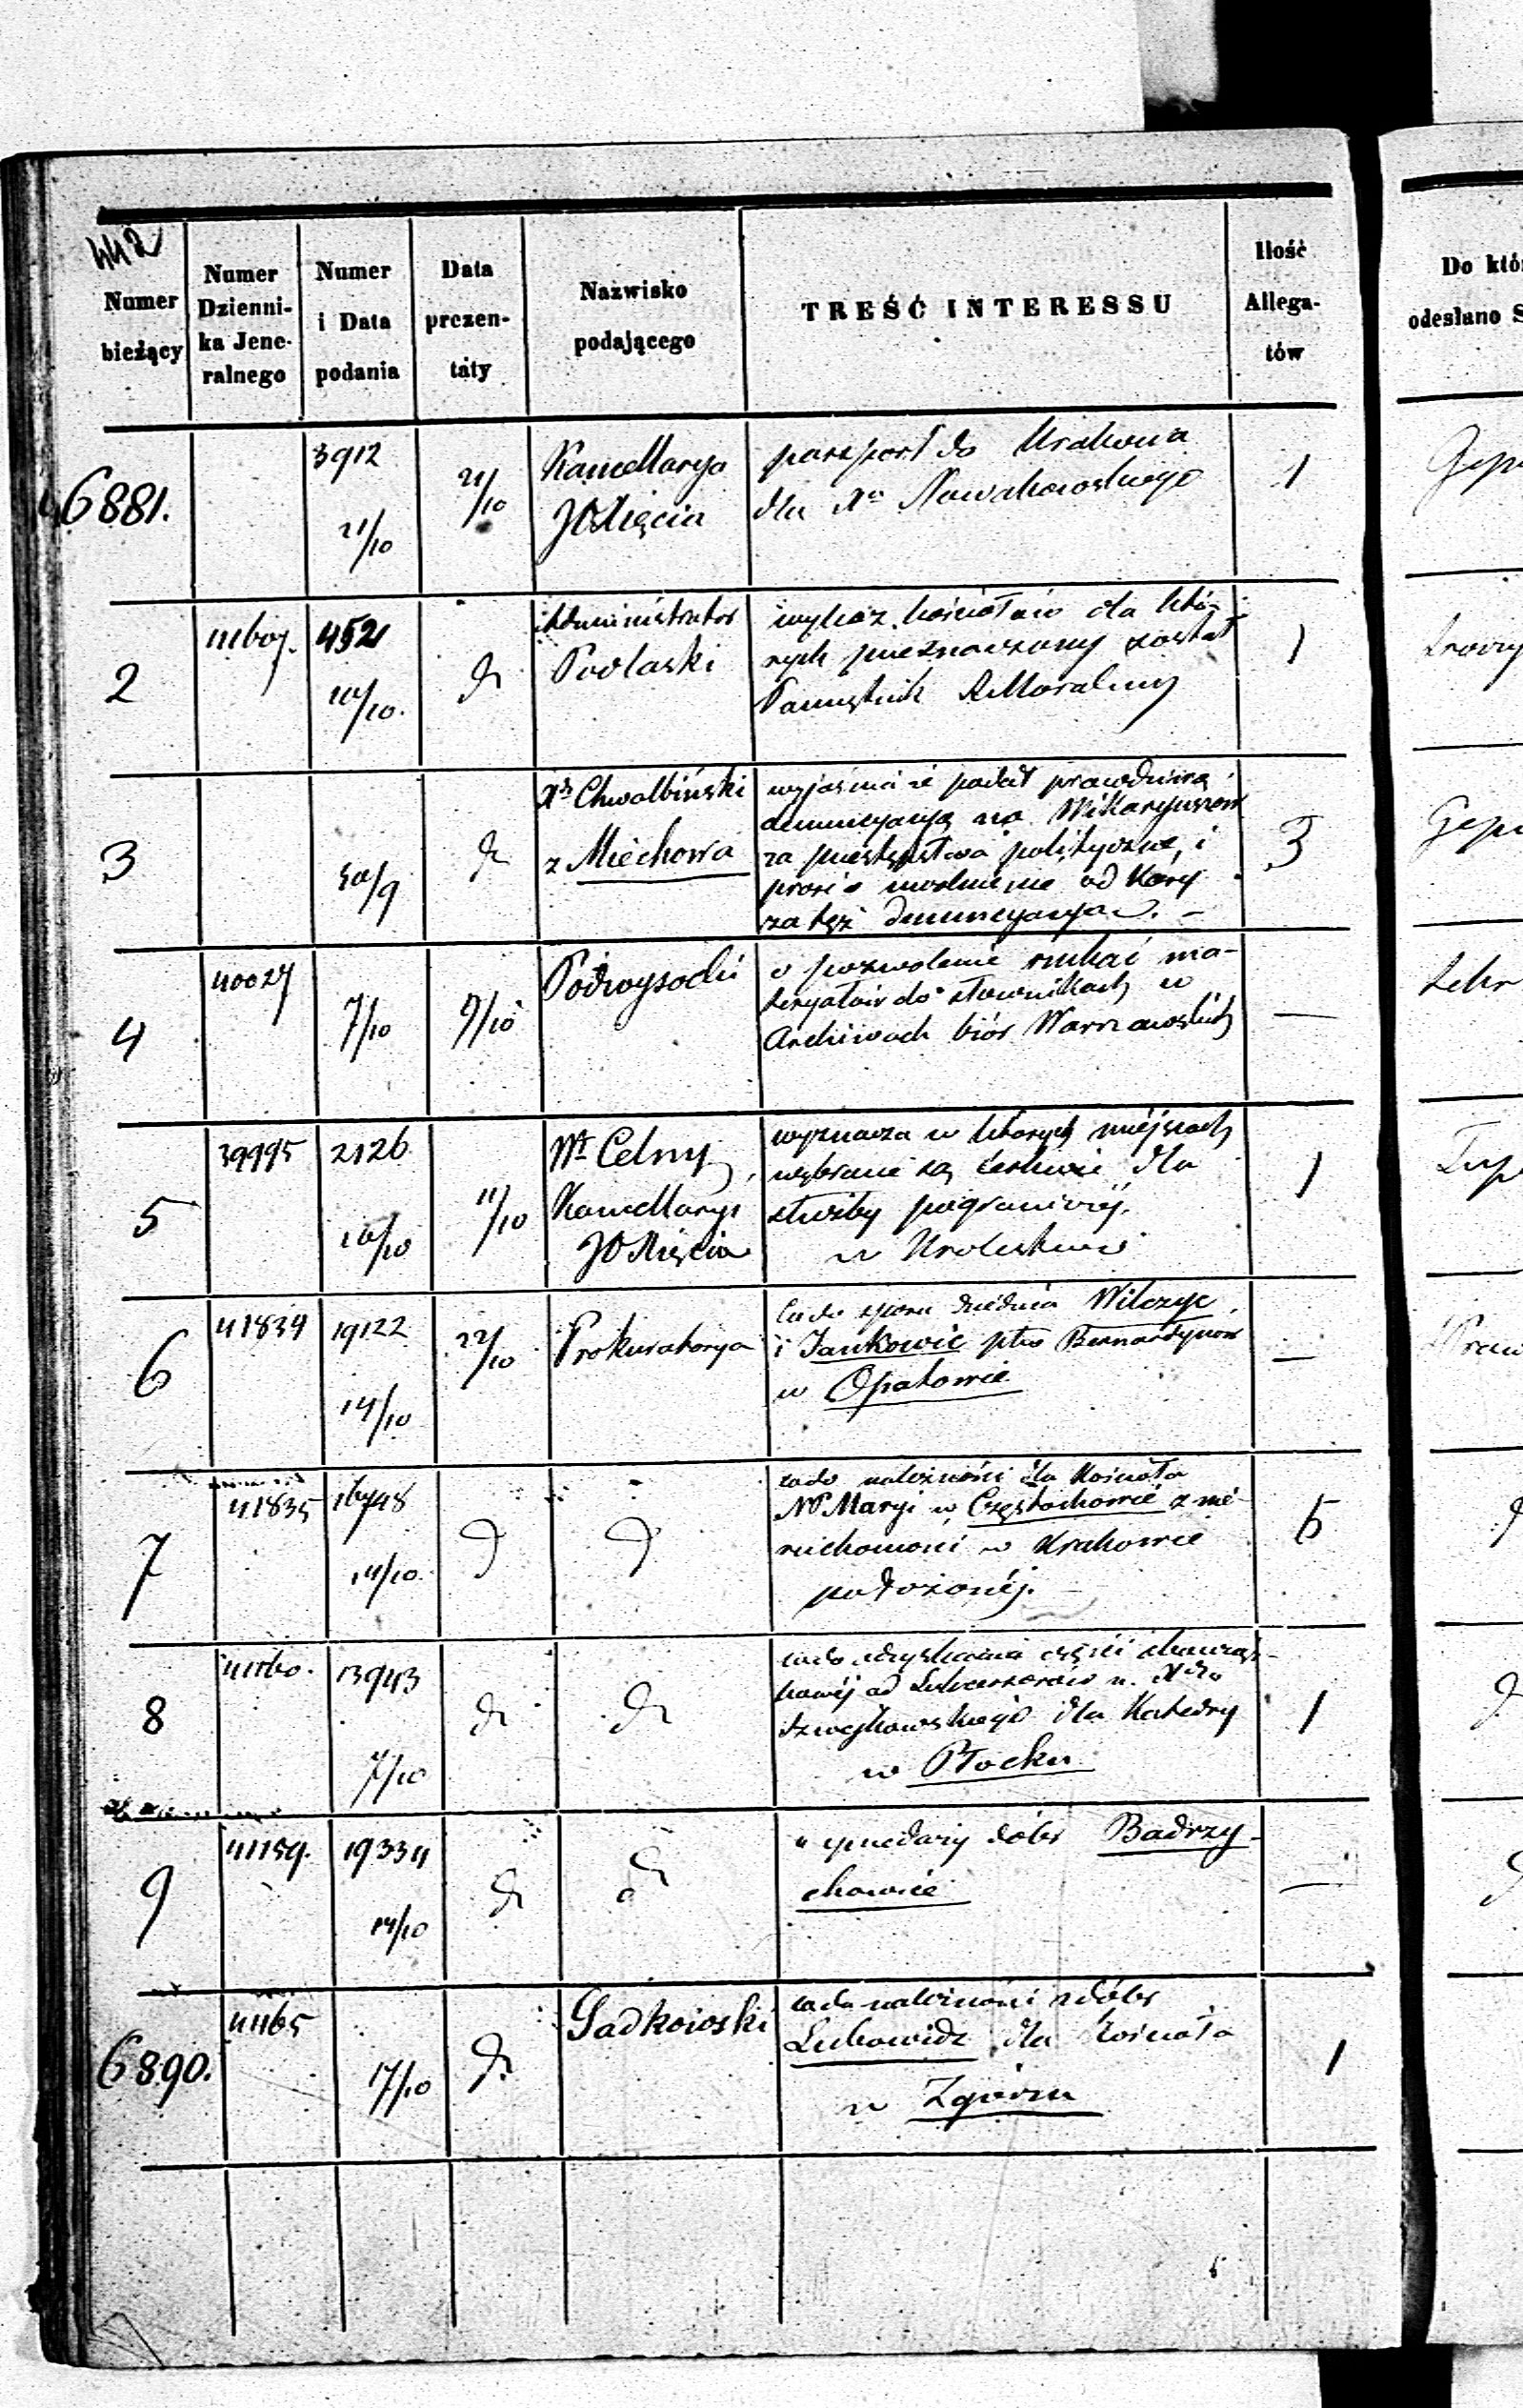 442
Numer bieżący
Numer Dzienni-ka Jene-ralnego
Numer i Data podania
Data prezen-taty
Nazwisko podającego
TREŚĆ INTERESSU
Ilość Allega-tów
Do któ
odesłano S
6881.
3912
21/10
21/10
Kancellarya
JOXięcia
paszport do Krakowa
dla Xa Nowakowskiego
1
2
452
10/10.
do
Administrator
Podlaski
wykaz kościołów dla któ-
rych przeznaczony został
Pamiętnik R. Moralny
1
3
30/9
do
Xdz Chwalbiński
z Miechowa
wyjaśnia że podał prawdziwą
denuncyacyą na Wikaryuszów
za przestępstwa polityczne, i
prosi o uwolnienie od kary
za tęż denuncyacyą. –
3
4
40027
7/10
9/10
Podwysocki
o pozwolenie szukać ma-
teryałów do słownikach w
Archiwach biór Warszawskich
—
5
39995
2126
10/10
11/10
Wł Celny
Kancellaryi
JOXięcia
wyznacza w których miejscach
wybrane są cerkwie dla
służby pogranicznéj.
w Królestwie
1
6
41834
19122
14/10
22/10
Prokuratorya
co do sporu dziedzica Wilczyc
i Jankowic ptko Bernardynom
w Opatowie
—
7
41835
16748
14/10.
do
do
co do należności dla Kościoła
NP Maryi w Częstochowie z nie-
ruchomości w Krakowie
położonéj. –
5
8
13943
7/10
do
do
co do odzyskania części
dla Katedry
w Płocku
1
9
41159.
19334
14/10
do
do
o sprzedaży dóbr Badrzy-
chowice
—
6890.
41165
17/10
do
Sadkowski
co do należności z dóbr
Lubowidz dla Kościoła
w Zgierzu
1